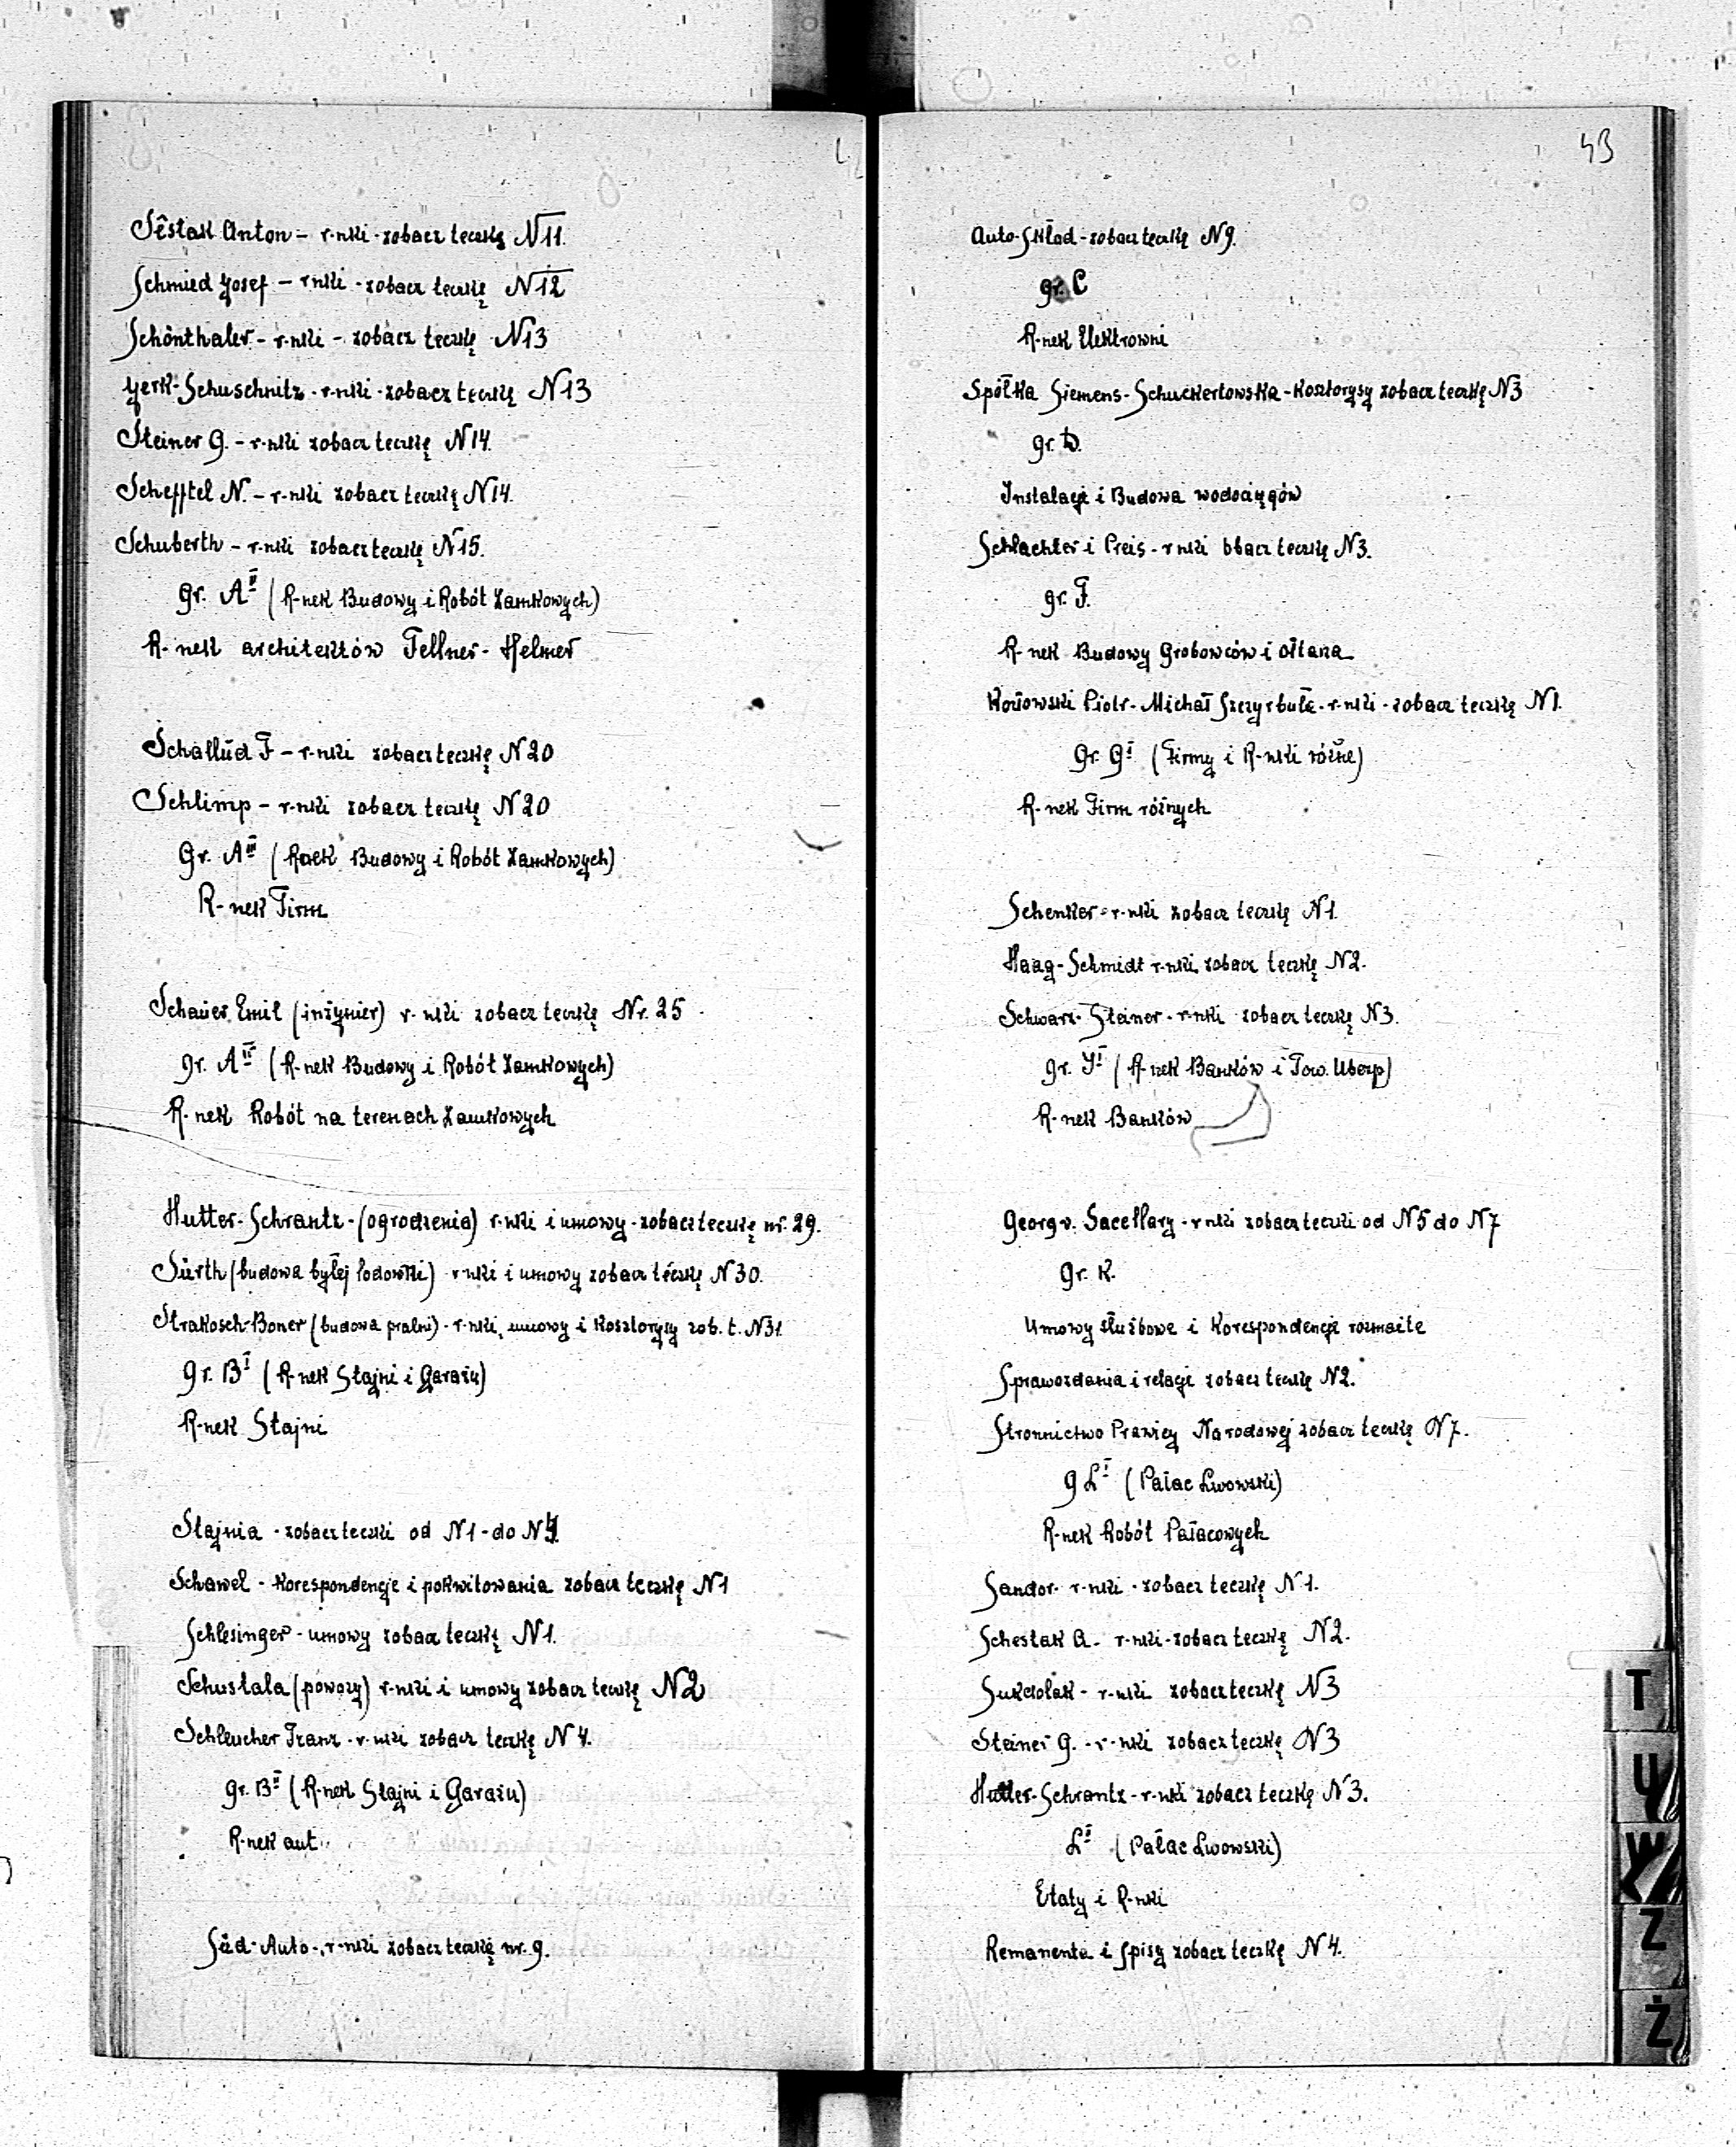 Sêstak Anton - r-nki - zobacz teczkę N 11.
Schmied Josef - r-nki - zobacz teczkę N 12
Schönthaler - r-nki - zobacz teczkę N 13
Jerk-Schuschnitz - r-nki - zobacz teczkę N 13
Steiner G. - r-nki zobacz teczkę N 14.
Schefftel N. - r-nki zobacz teczkę N 14.
Schuberth - r-nki zobacz teczkę N 15.
gr. A II (R-nek Budowy i Robót Zamkowych)
R-nek architektów Fellner-Helmer
Schallud F - r-nki zobacz teczkę N 20
Schlimp - r-nki zobacz teczkę N 20
Gr. A III (R-nek Budowy i Robót Zamkowych)
R-nek Firm
Schauer Emil (inżynier) r-nki zobacz teczkę Nr. 25
gr. A IV (R-nek Budowy i Robót Zamkowych)
R-nek Robót na terenach Zamkowych
Hutter-Schrantz - (ogrodzenia) r-nki i umowy - zobacz teczkę nr. 29.
Sürth (budowa byłej lodowni) r-nki i umowy zobacz teczkę N 30.
Strakosch-Boner (budowa pralni) - r-nki, umowy i kosztorysy zob. t. N 31
gr. B I (R-nek Stajni i Garażu)
R-nek Stajni
Stajnia - zobacz teczki od N 1 - do N 4
Schawel - korespondencje i pokwitowania zobacz teczkę N 1
Schlesinger - umowy zobacz teczkę N 1.
Schustala (powozy) r-nki i umowy zobacz teczkę N 2
Schleucher Franz - r-nki zobacz teczkę N 4.
gr. B II (R-nek Stajni i Garażu)
R-nek aut
Süd-Auto - r-nki zobacz teczkę nr. 9.
43
Auto-Skład - zobacz teczkę N 9.
gr. C
R-nek Elektrowni
Spółka Siemens-Schuckertowska - kosztorysy zobacz teczkę N 3
gr. D.
Instalacje i Budowa wodociągów
Schlachter i Preis - r-nki obacz teczkę N 3.
gr. F.
R-nek Budowy Grobowców i ołtarza
Piotr - Michał Szczyrbuła - r-nki - zobacz teczkę N 1.
Gr. G I (Firmy i R-nki różne)
R-nek Firm różnych
Schenker - r-nki zobacz teczkę N 1.
Haag-Schmidt r-nki zobacz teczkę N 2.
Schwarz-Steiner - r-nki zobacz teczkę N 3.
gr. J I (R-nek Banków i Tow. Ubezp)
R-nek Banków
Georg v. Sacellary - r-nki zobacz teczki od N 5 do N 7
gr. K.
Umowy służbowe i korespondencje rozmaite
Sprawozdania i relacje zobacz teczkę N 2.
Stronnictwo Prawicy Narodowej zobacz teczkę N 7.
g L I (Pałac Lwowski)
R-nek Robót Pałacowych
Sandor - r-nki - zobacz teczkę N 1.
Schestak A. - r-nki - zobacz teczkę N 2.
Sukdolak - r-nki zobacz teczkę N 3
Steiner G. - r-nki zobacz teczkę N 3
Hutter-Schrantz - r-nki zobacz teczkę N 3.
L II (Pałac Lwowski)
Etaty i R-nki
Remanenta i spisy zobacz teczkę N 4.
T
U
W
Z
Ż